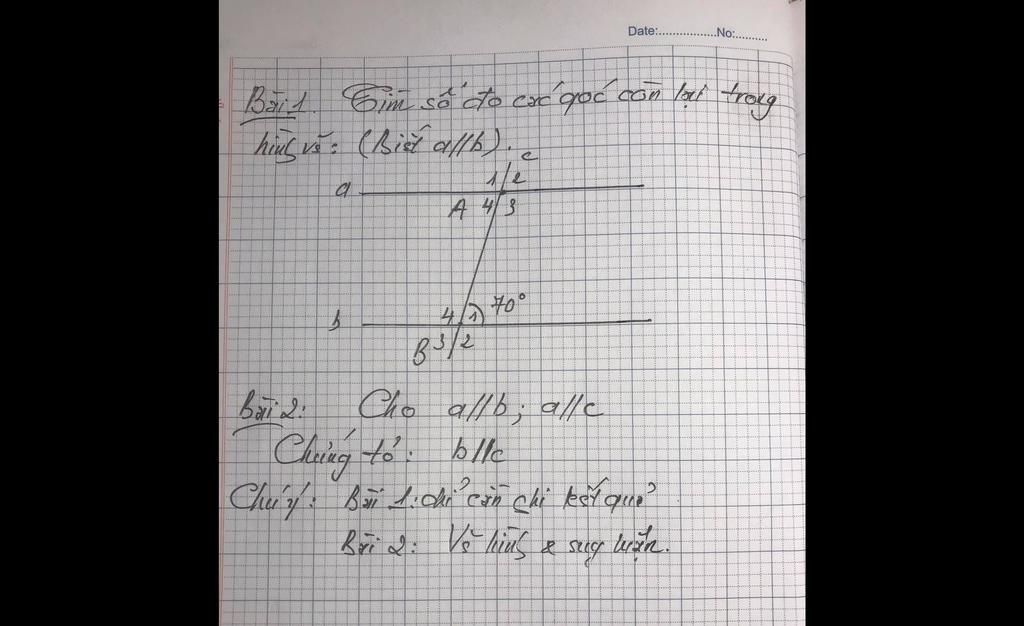 Date:................No:..........
Bài 1. Tìm số đo các góc còn lại trong
hình vẽ: (Biết a//b).
c
a
1 2
A 4 3
70°
b
4 1
B 3 2
Bài 2: Cho a//b; a//c
Chứng tỏ: b//c
Chú ý: Bài 1: chỉ cần ghi kết quả
Bài 2: Vẽ hình & suy luận.